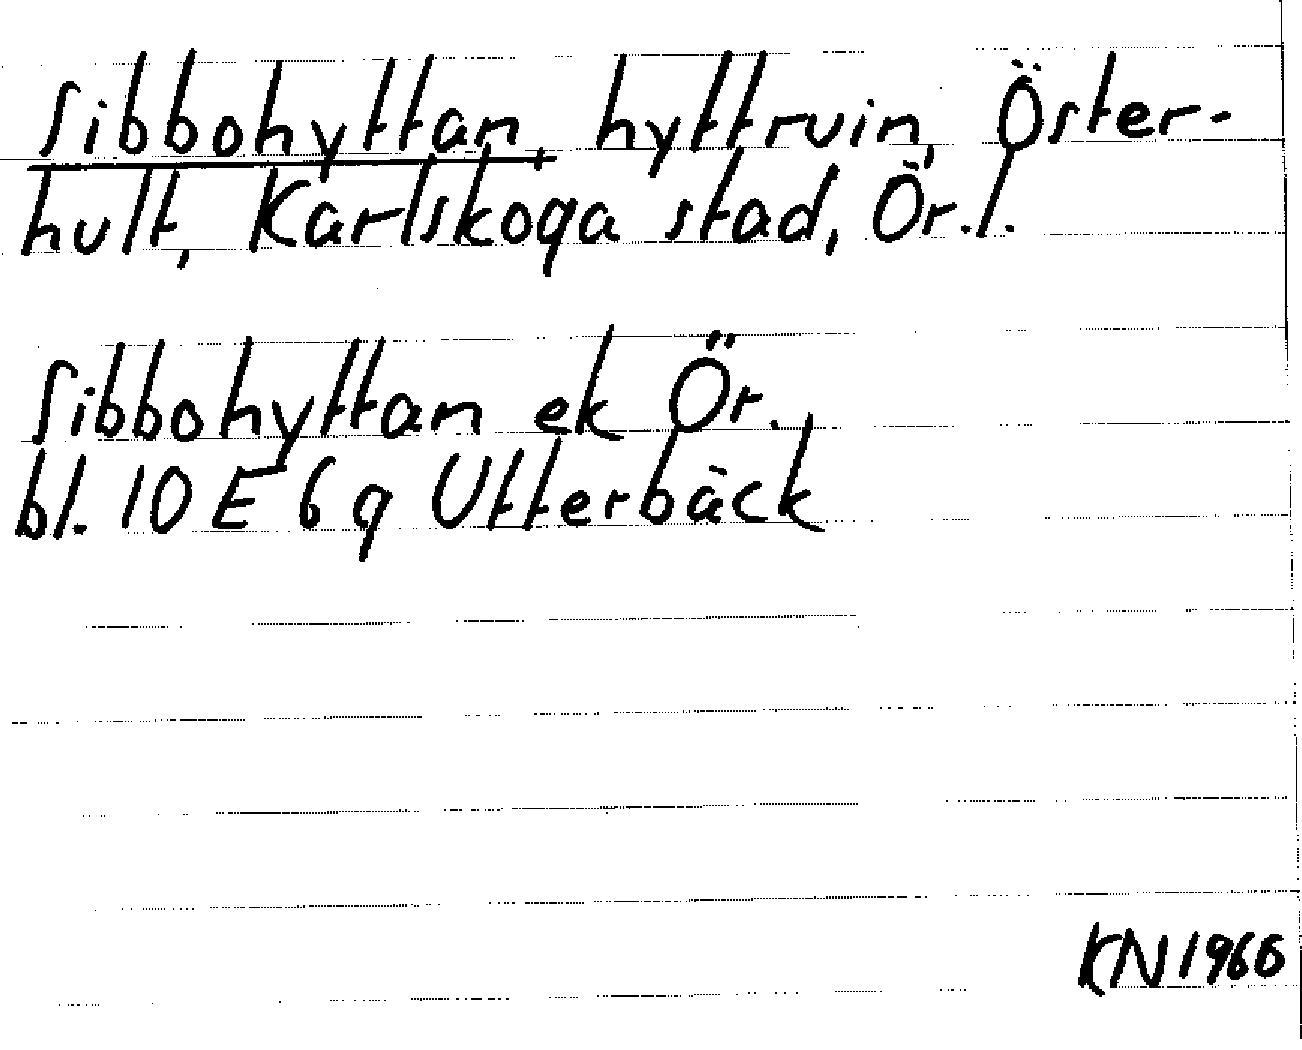 Sibbohyttan, hyttruin, Öster-
hult, Karlskoga stad, Ör.l.
Sibbohyttan ek Ör.
bl. 10 E 6 g Utterbäck
KN 1966